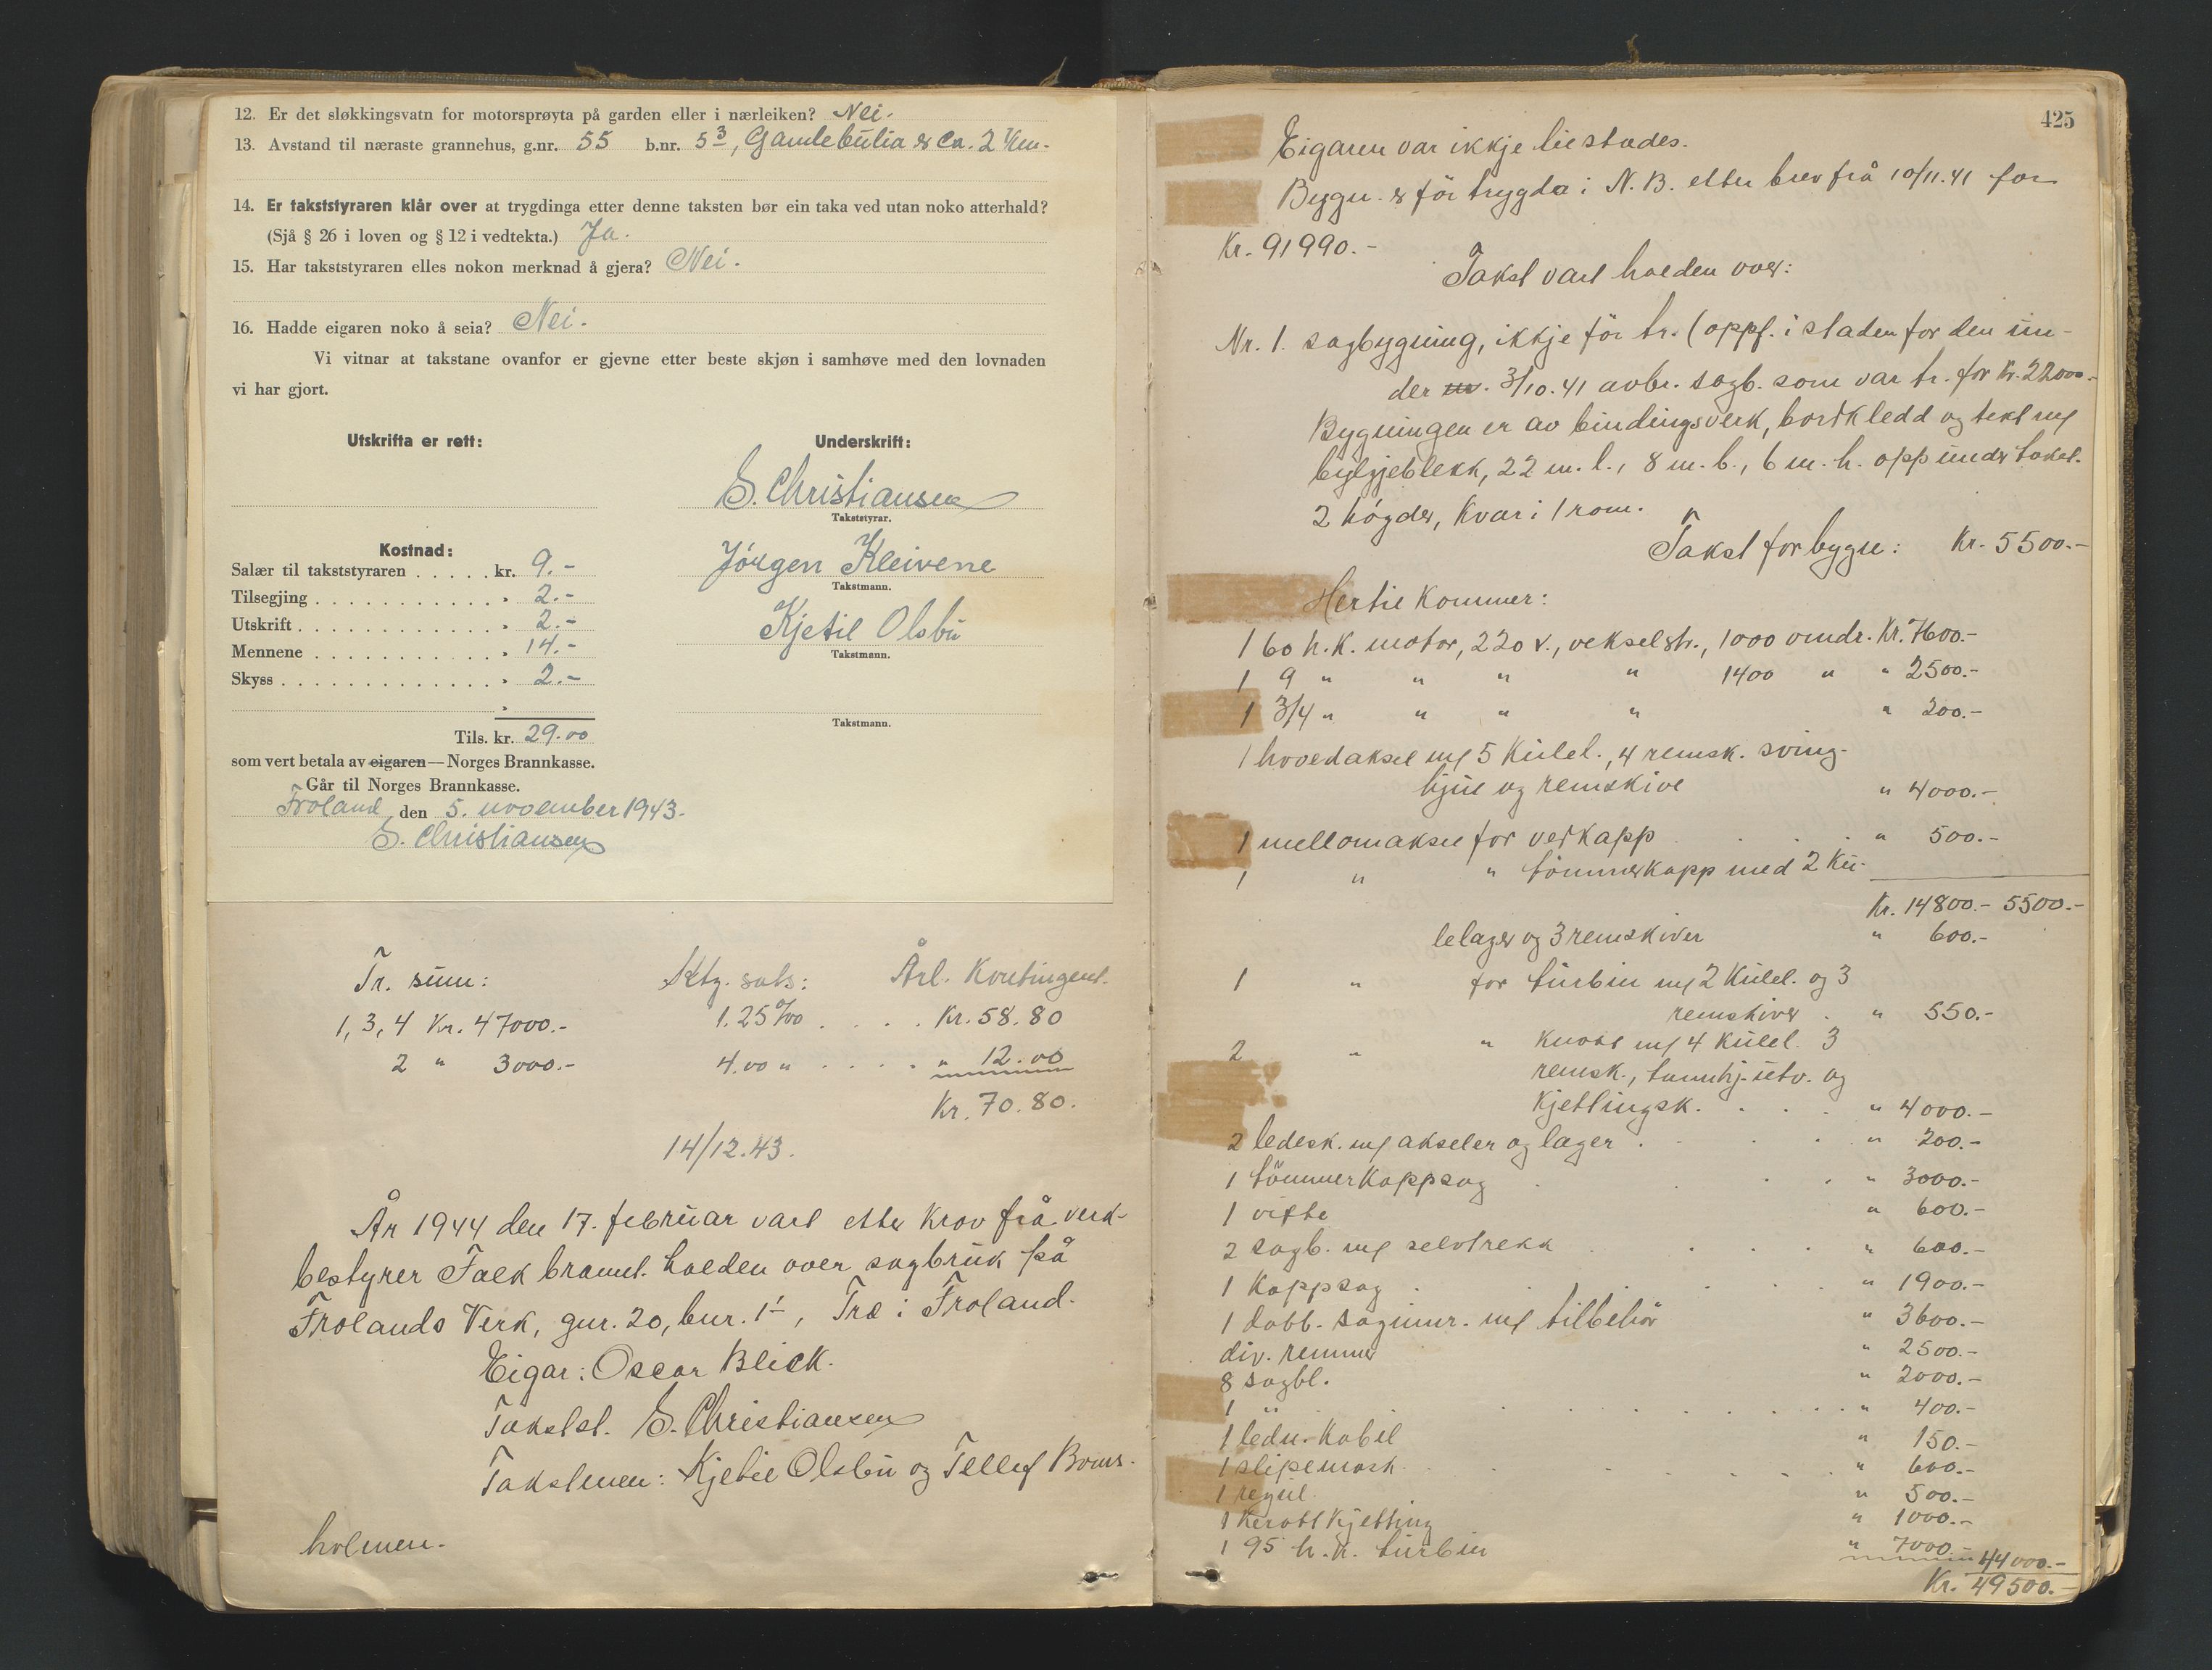 12. Er det sløkkingsvatn for motorsprøyta på garden eller i nærleiken? Nei.
13. Avstand til næraste grannehus, g.nr. 55 b.nr. 5³, Gamlebulia er ca. 2 km.
14. Er takststyraren klår over at trygdinga etter denne taksten bør ein taka ved utan noko atterhald?
(Sjå § 26 i loven og § 12 i vedtekta.) Ja.
15. Har takststyraren elles nokon merknad å gjera? Nei.
16. Hadde eigaren noko å seia? Nei.
Vi vitnar at takstane ovanfor er gjevne etter beste skjøn i samhøve med den lovnaden
vi har gjort.
Utskrifta er rett:
Underskrift:
S. Christiansen
Takststyrar.
Jörgen Kleivene
Takstmann.
Kjetil Olsbu
Takstmann.
Takstmann.
Kostnad:
Salær til takststyraren . . . . . kr. 9.-
Tilsegjing . . . . . . . . . . . » 2.-
Utskrift . . . . . . . . . . . . » 2.-
Mennene . . . . . . . . . . . » 14.-
Skyss . . . . . . . . . . . . . » 2.-
»
Tils. kr. 29.00
som vert betala av eigaren — Norges Brannkasse.
Går til Norges Brannkasse.
Froland den 5. november 1943.
S. Christiansen
Tr. sum: Ktg. sats: Årl. Kontingent.
1, 3, 4 Kr. 47000.- 1.25 ‰ . . . . Kr. 58.80
2 " 3000.- 4.00 " . . . . " 12.00
Kr. 70.80.
14/12.43.
År 1944 den 17. februar vart etter krov frå verk-
bestyrer Falk bramt. halden over sagbruk på
Frolands Verk, gnr. 20, bnr. 1, Træ i Froland.
Eigar: Oscar Blick.
Takstst. S. Christiansen
Takstmen: Kjetil Olsbu og Tellef Boms-
holmen.
425
Eigaren var ikkje tilstades.
Bygn. er för trygda i N. B. etter brev frå 10/11.41 for
Kr. 91990.-
Takst vart halden over:
Nr. 1. sagbygning, ikkje för tr. (oppf. i staden for den un-
der 3/10.41 avbr. sagb. som var tr. for Kr. 22000.-
Bygningen er av bindingsverk, bordkledd og tekt m/
bylgjeblekk, 22 m. l., 8 m. b., 6 m. h. opp under taket.
2 högder, kvar i 1 rom.
Takst for bygn: Kr. 5500.-
Hertil kommer:
1 60 h.k. motor, 220 v., vekselstr., 1000 omdr. Kr. 7600.-
1 9 " " " " 1400 " " 2500.-
1 3/4 " " " " " 200.-
1 hovedaksel m/ 5 kulel., 4 remsk. sving-
hjul og remskive " 4000.-
1 mellomaksel for vedkapp . . . " 500.-
1 " " tömmerkapp med 2 ku-
Kr. 14800.- 5500.-
lelager og 3 remskiver " 600.-
1 " for turbin m/ 2 kulel. og 3
remskiver . " 550.-
2 " " knott m/ 4 kulel. 3
remsk., tannhj. utv. og
kjettingsk. . . . . " 4000.-
2 ledesk. m/ akseler og lager . . . . " 200.-
1 tömmerkappsag . . . . " 3000.-
1 vifte " 600.-
2 sagb. m/ selvtrekk . . . . " 600.-
1 Kappsag . . . . . " 1900.-
1 dobb. saginnr. m/ tilbehör " 3600.-
div. remmer " 2500.-
8 sagbl. " 2000.-
1 " . . . . . . . . . . " 400.-
1 ledn. kabel " 150.-
1 slipemask. . . . . . . " 600.-
1 regul. " 500.-
1 Kerattkjetting " 1000.-
1 95 h.k. turbin " 7000.- 44000.-
Kr. 49500.-